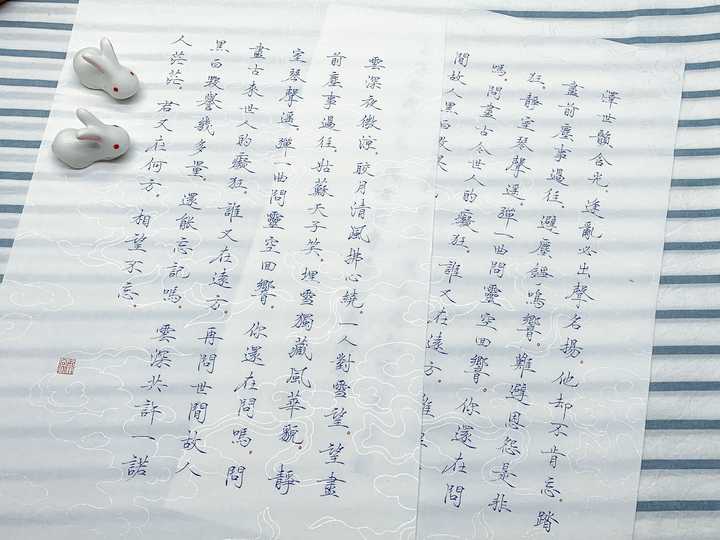 澤世含光，逢亂必出聲名揚。他却不肯忘。踏
盡前塵事過往，避塵鳴響。難避恩怨是非
狂。靜室琴聲遥，彈一曲問靈空回響。你還在問
嗎，問盡古今世人的癡狂。誰又在遠方。
間故人黑白
雲深夜微涼，皎月清風拂心繞。一人對雪望。望盡
前塵事過往，姑蘇天子笑。埋雪獨藏風華貌。靜
室琴聲遥，彈一曲問靈空回響。你還在問嗎。問
盡古來世人的癡狂，誰又在遠方。再問世間故人
黑白毀譽幾多量，還能忘記嗎。雲深共許一諾
人茫茫，君又在何方。相望不忘。